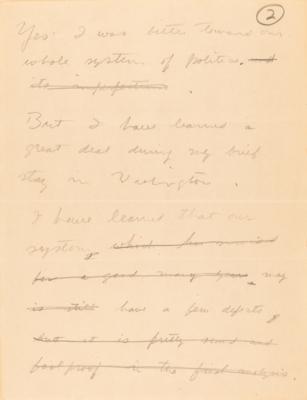 2
Yes. I was bitter toward our
whole system of politics. and
its imperfections
But I have learned a
great deal during my brief
stay in Washington.
I have learned that our
system, which has served
for a good many years may
is still have a few defects,
but it is pretty sound and
fool proof in the final analysis.